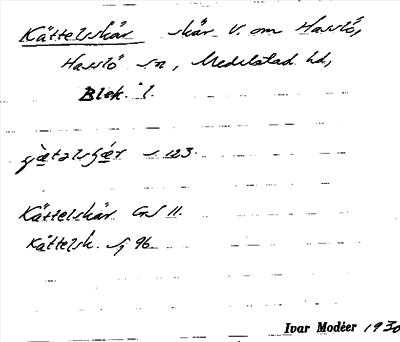 Kättelskär skär V. om Hasslö,
Hasslö sn, Medelstad hd,
Blek. l.
s. 123.
Kättelskär GS 11.
Kättelsk. Sj 96
Ivar Modéer 1930